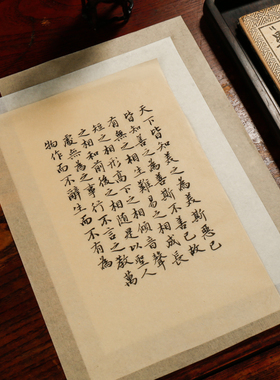 天下皆知美之為美斯惡已
皆知善之為善斯不善已故
有無之相生難易之相成長
短之相形高下之相傾音聲
之相和前後之相隨是以聖人
處無為之事行不言之教萬
物作而不辭生而不有為